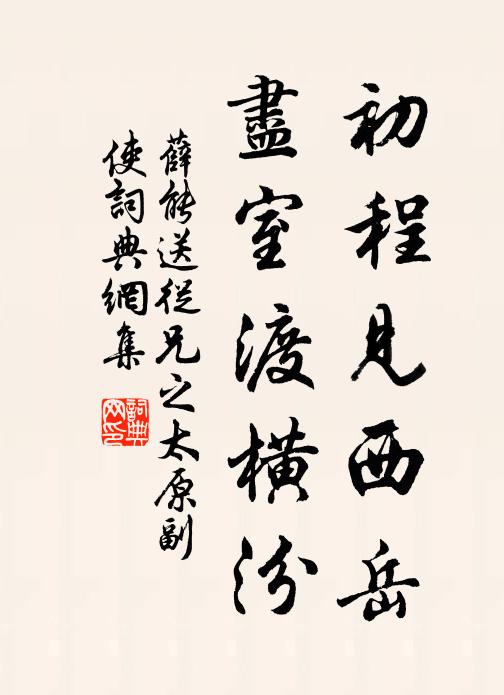 初程見西岳
盡室渡橫汾
薛能送從兄之太原副
使詞典網集
詞典
网印